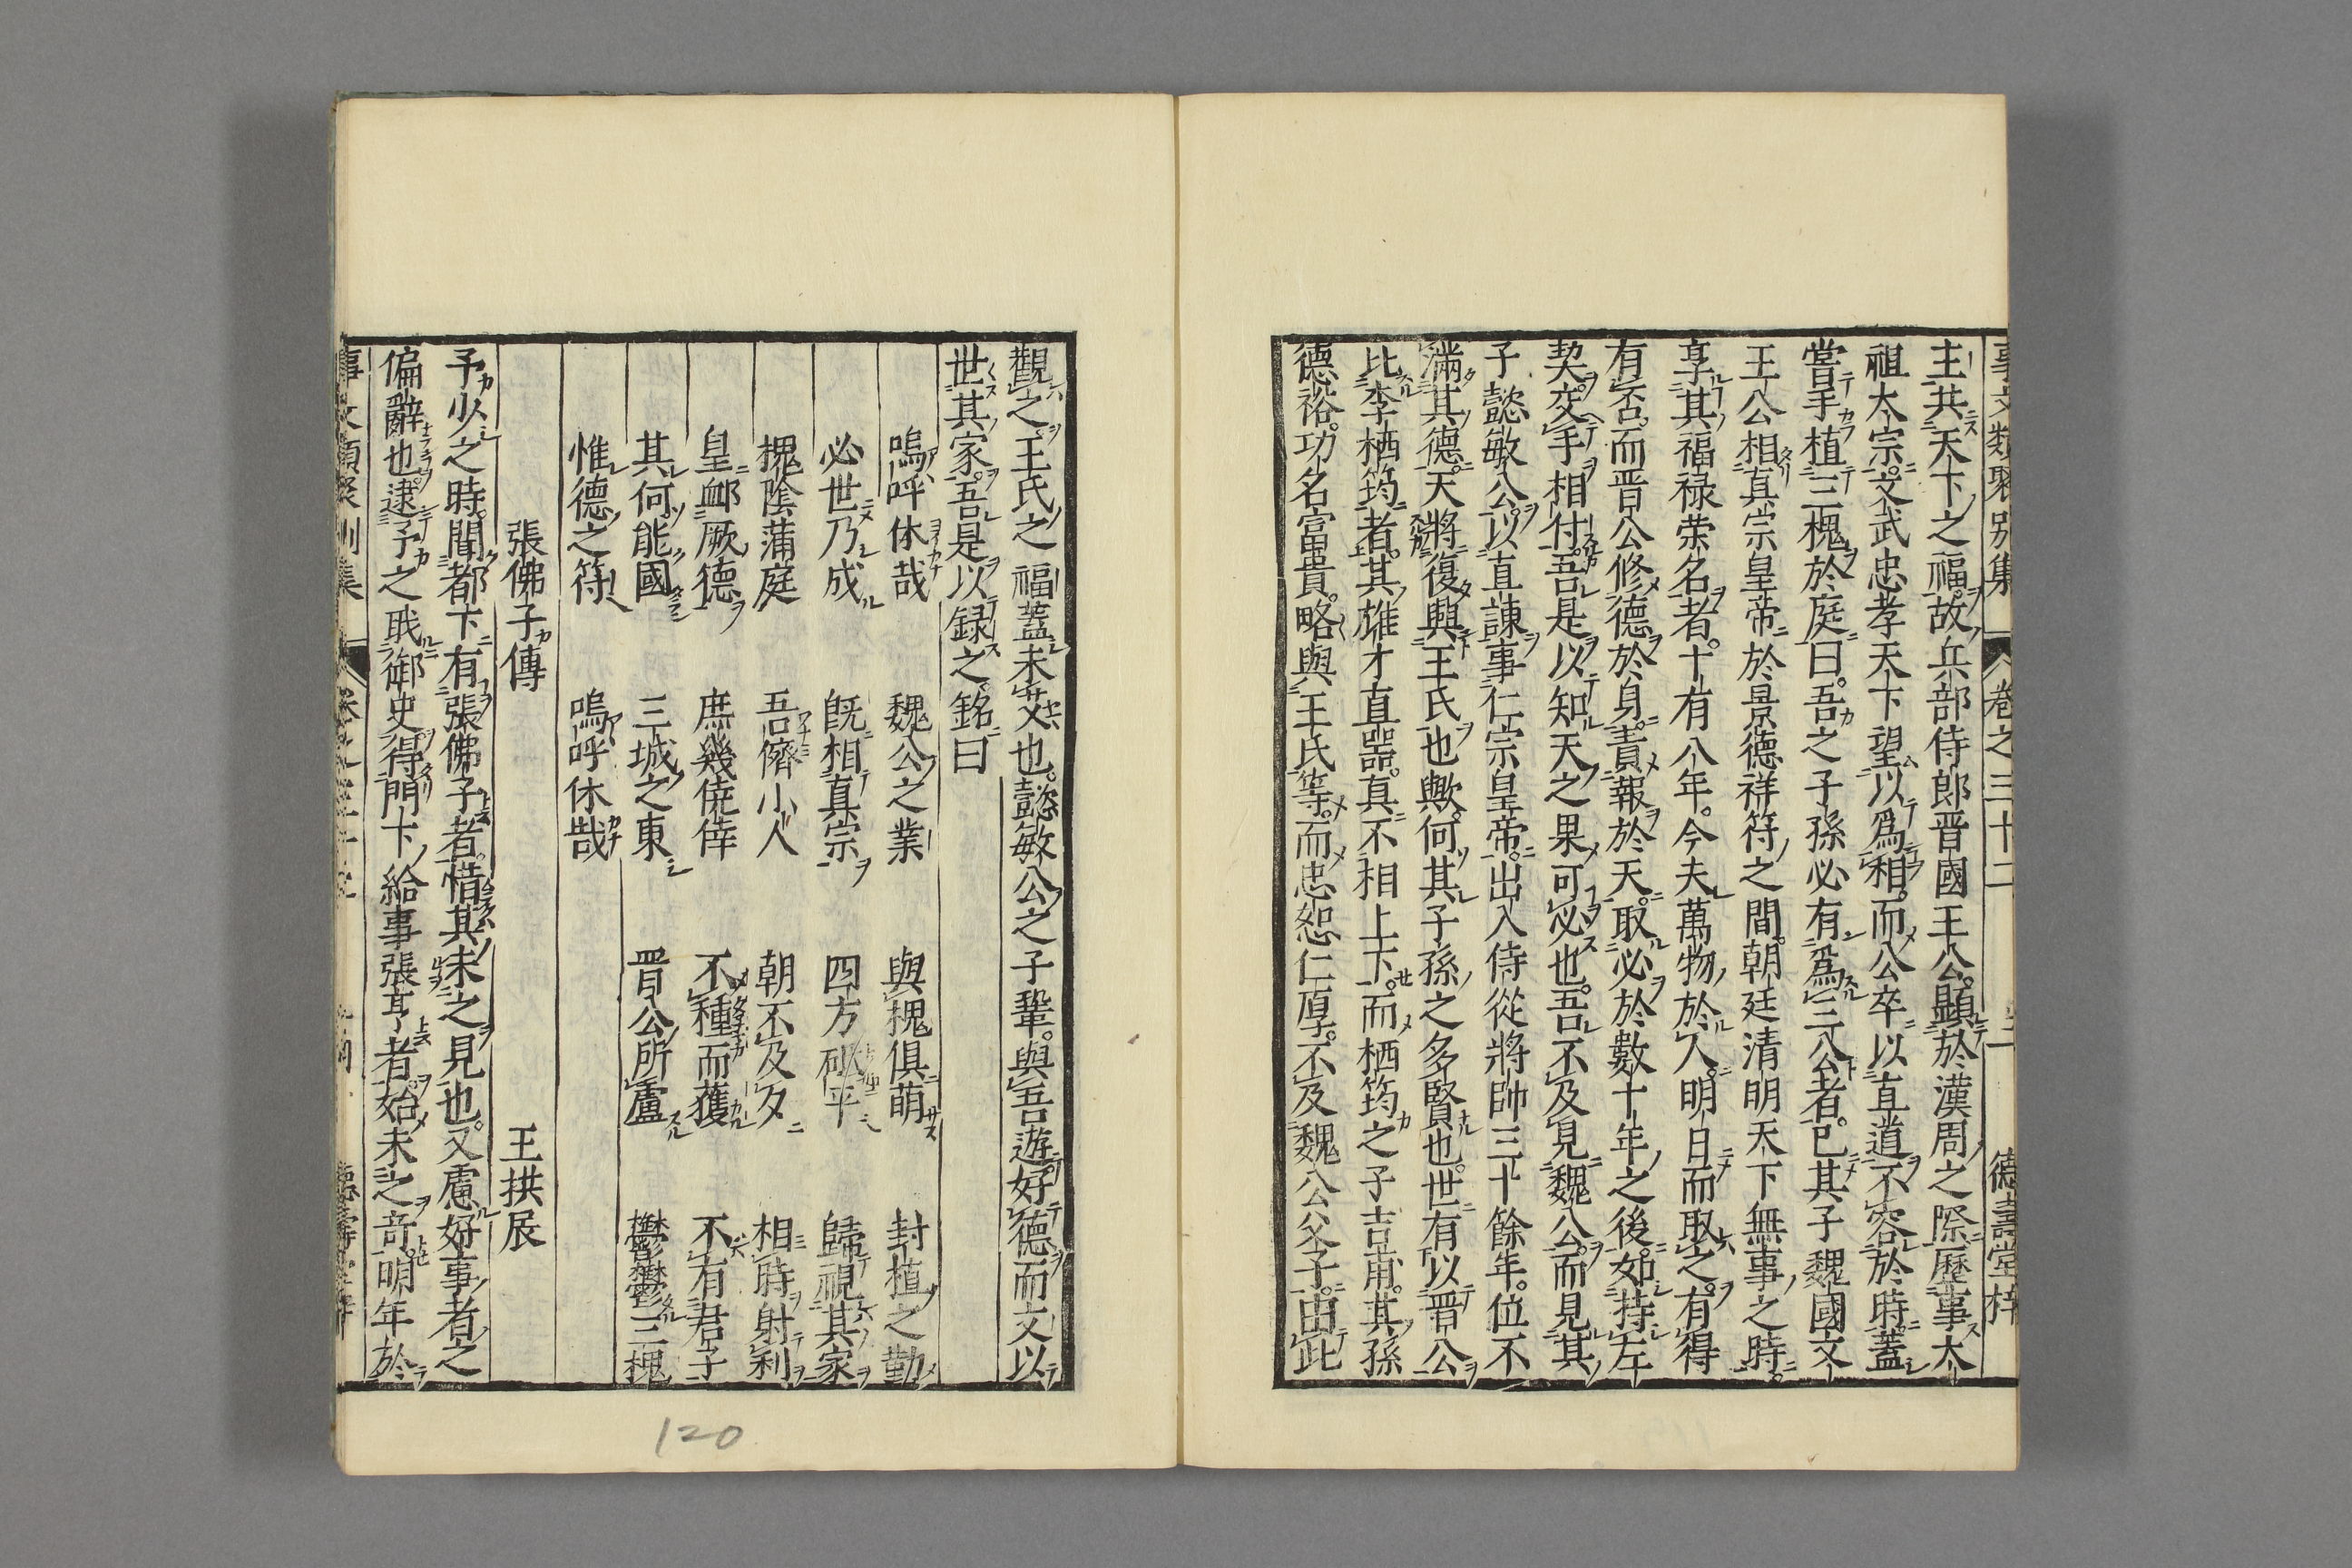 事文類聚別集 卷之三十二 德壽堂梓
主共天下之福故兵部侍郎晋國王公顯於漢周之際歷事太
祖太宗文武忠孝天下望以爲相而公卒以直道不容於時蓋
嘗手植三槐於庭曰吾之子孫必有爲三公者已其子魏國文
王公相真宗皇帝於景德祥符之間朝廷清明天下無事之時
享其福禄荣名者十有八年今夫萬物於人明日而取之有得
有否而晋公修德於身責報於天取必於數十年之後如持左
契交手相付吾是以知天之果可必也吾不及見魏公而見其
子懿敏公以直諫事仁宗皇帝出入侍從將帥三十餘年位不
滿其德天將復興王氏也歟何其子孫之多賢也世有以晋公
比李栖筠者其雄才直噐真不相上下而栖筠之子吉甫其孫
德裕功名富貴略與王氏等而忠恕仁厚不及魏公父子由此
觀之王氏之福蓋未艾也懿敏公之子鞏與吾遊好德而文以
世其家吾是以録之銘曰
嗚呼休哉 魏公之業 與槐俱萌 封植之勤
必世乃成 既相真宗 四方砥平 歸視其家
槐陰蒲庭 吾儕小人 朝不及夕 相時射利
皇卹厥德 庶幾僥倖 不種而獲 不有君子
其何能國 三城之東 晋公所廬 鬱鬱三槐
惟德之符 嗚呼休哉
張佛子傳 王拱辰
予少之時聞都下有張佛子者惜其未之見也又慮好事者之
偏辭也逮予之職御史得門下給事張亨者始末之竒明年於